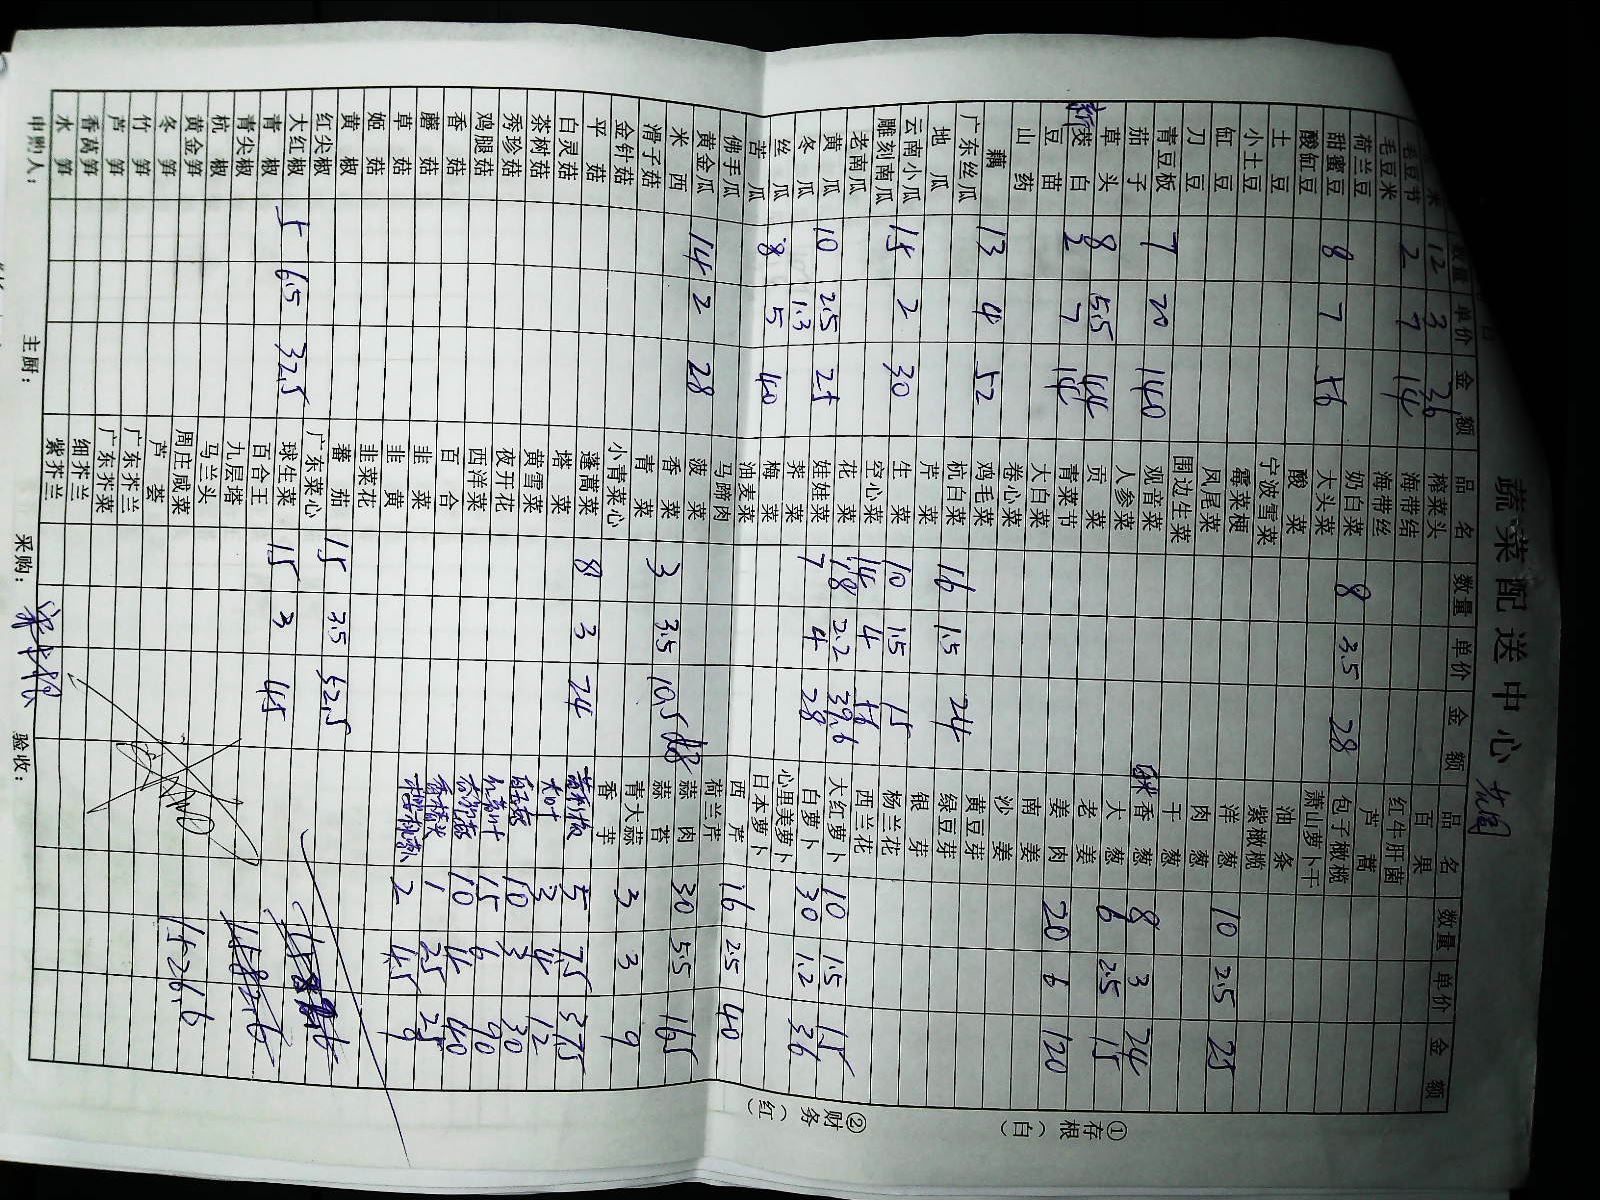 蔬菜配送中心
数量 单价 金额 品名 数量 单价 金额 品名 数量 单价 金额
米 12 3 36 榨菜头 百果
毛豆节 2 7 14 海带结 红牛肝菌
毛豆米 海带丝 芦蒿
荷兰豆 奶白菜 8 3.5 28 包子橄榄
甜蜜豆 8 7 56 大头菜 萧山萝卜干
酸缸豆 酸菜 油条
土豆 宁波雪菜 紫橄榄
小土豆 霉菜梗 洋葱 10 2.5 25
缸豆 凤尾菜 肉葱
刀豆 围边生菜 干葱
青豆板 7 20 140 观音菜 香葱 8 3 24
茄子 人参菜 大葱 6 2.5 15
草头 8 5.5 44 贡菜 老姜
茭白 2 7 14 青菜节 姜肉 20 6 120
豆苗 大白菜 南姜
山药 卷心菜 沙姜
藕 13 4 52 鸡毛菜 黄豆芽
广东丝瓜 杭白菜 16 1.5 24 绿豆芽
地瓜 芦菜 银芽
云南小瓜 15 2 30 生菜 10 1.5 15 杨兰花
雕刻南瓜 空心菜 14 4 56 西兰花
老南瓜 花菜 18 2.2 39.6 大红萝卜 10 1.5 15
黄瓜 10 2.5 25 娃娃菜 7 4 28 白萝卜 30 1.2 36
冬瓜 1.3 荠菜 心里美萝卜
丝瓜 8 5 40 梅菜 日本萝卜
苦瓜 油麦菜 西芹 16 2.5 40
佛手瓜 马蹄肉 荷兰芹
黄金瓜 14 2 28 菠菜 蒜肉 30 5.5 165
米西 香菜 3 3.5 10.5 蒜苔
滑子菇 青菜 青大蒜 3 3 9
金针菇 小青菜心 香芋
平菇 蓬蒿菜 8 3 24 5 7.5 37.5
白灵菇 塔菜 3 4 12
茶树菇 黄雪菜 10 3 30
秀珍菇 夜开花 15 6 90
鸡腿菇 西洋菜 10 4 40
香菇 百合 1 25 25
蘑菇 韭菜 2 4.5 9
草菇 韭黄
姬菇 韭菜花
黄椒 蕃茄 15 3.5 52.5
红尖椒 广东菜心
大红椒 5 6.5 32.5 球生菜 15 3 45
青椒 百合王
青尖椒 九层塔 1582.6
杭椒 马兰头
黄金笋 周庄咸菜 1526.6
冬笋 芦荟
竹笋 广东芥兰
芦笋 广东芥菜
香莴笋 细芥兰
水笋 紫芥兰
申购人： 主厨： 采购： 验收：
①存根（白）
②财务（红）